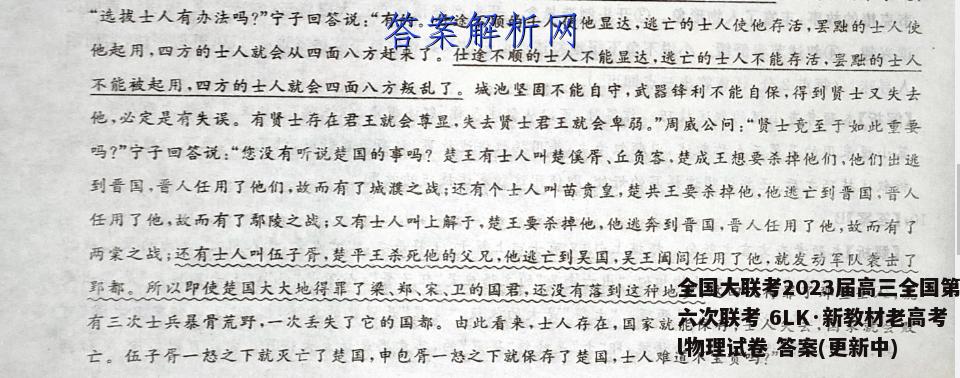 "选拔士人有办法吗?"宁子回答说:"有 。 途 顺 士人 他显达,逃亡的士人使他存活,罢黜的士人使
答案解析网
他起用,四方的士人就会从四面八方赶来了。仕途不顺的士人不能显达,逃亡的士人不能存活,罢黜的士人
不能被起用,四方的士人就会四面八方叛乱了。城池坚固不能自守,武器锋利不能自保,得到贤士又失去
他,必定是有失误。有贤士存在君王就会尊显,失去贤士君王就会卑弱。"周威公问:"贤士竟至于如此重要
吗?"宁子回答说:"您没有听说楚国的事吗?楚王有士人叫楚傒胥、丘负客,楚成王想要杀掉他们,他们出逃
到晋国,晋人任用了他们,故而有了城濮之战;还有个士人叫苗贲皇,楚共王要杀掉他,他逃亡到晋国,晋人
任用了他,故而有了鄢陵之战;又有士人叫上解于,楚王要杀掉他,他逃奔到晋国,晋人任用了他,故而有了
两棠之战;还有士人叫伍子胥,楚平王杀死他的父兄,他逃亡到吴国,吴王阖闾任用了他,就发动军队袭击了
郢都。所以即使楚国大大地得罪了梁、郑、宋、卫的国君,还没有落到这种地
有三次士兵暴骨荒野,一次丢失了它的国都。由此看来,士人存在,国家就能
亡。伍子胥一怒之下就灭亡了楚国,申包胥一怒之下就保存了楚国,士人难道不宝贵吗?"
全国大联考2023届高三全国第
六次联考 6LK·新教材老高考
l物理试卷 答案(更新中)